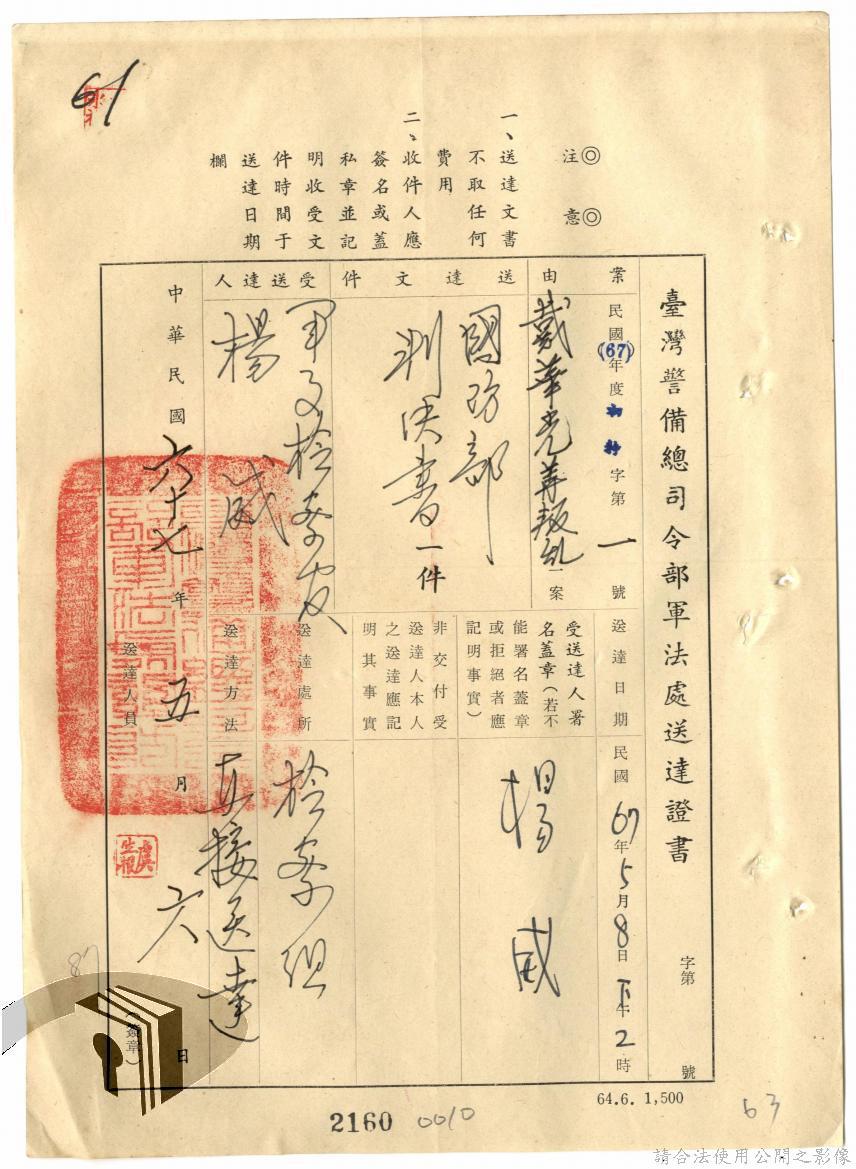 61
◎注意◎
一、送達文書
不取任何
費用
二、收件人應
簽名或蓋
私章並記
明收受文
件時間于
送達日期
欄
臺灣警備總司令部軍法處送達證書
字第 號
案由
民國(67)年度初特字第一號
戴華光等叛亂一案
送達文件
國防部
判決書一件
受送達人
軍事檢察官
楊威
中華民國六十七年五月六日
送達日期
民國67年5月8日下午2時
受送達人署
名蓋章(若不
能署名蓋章
或拒絕者應
記明事實)
楊威
非交付受
送達人本人
之送達應記
明其事實
送達處所
檢察組
送達方法
直接送達
送達人員
(簽章)
虞生根
64.6. 1,500
2160
0010
63
87
請合法使用公開之影像